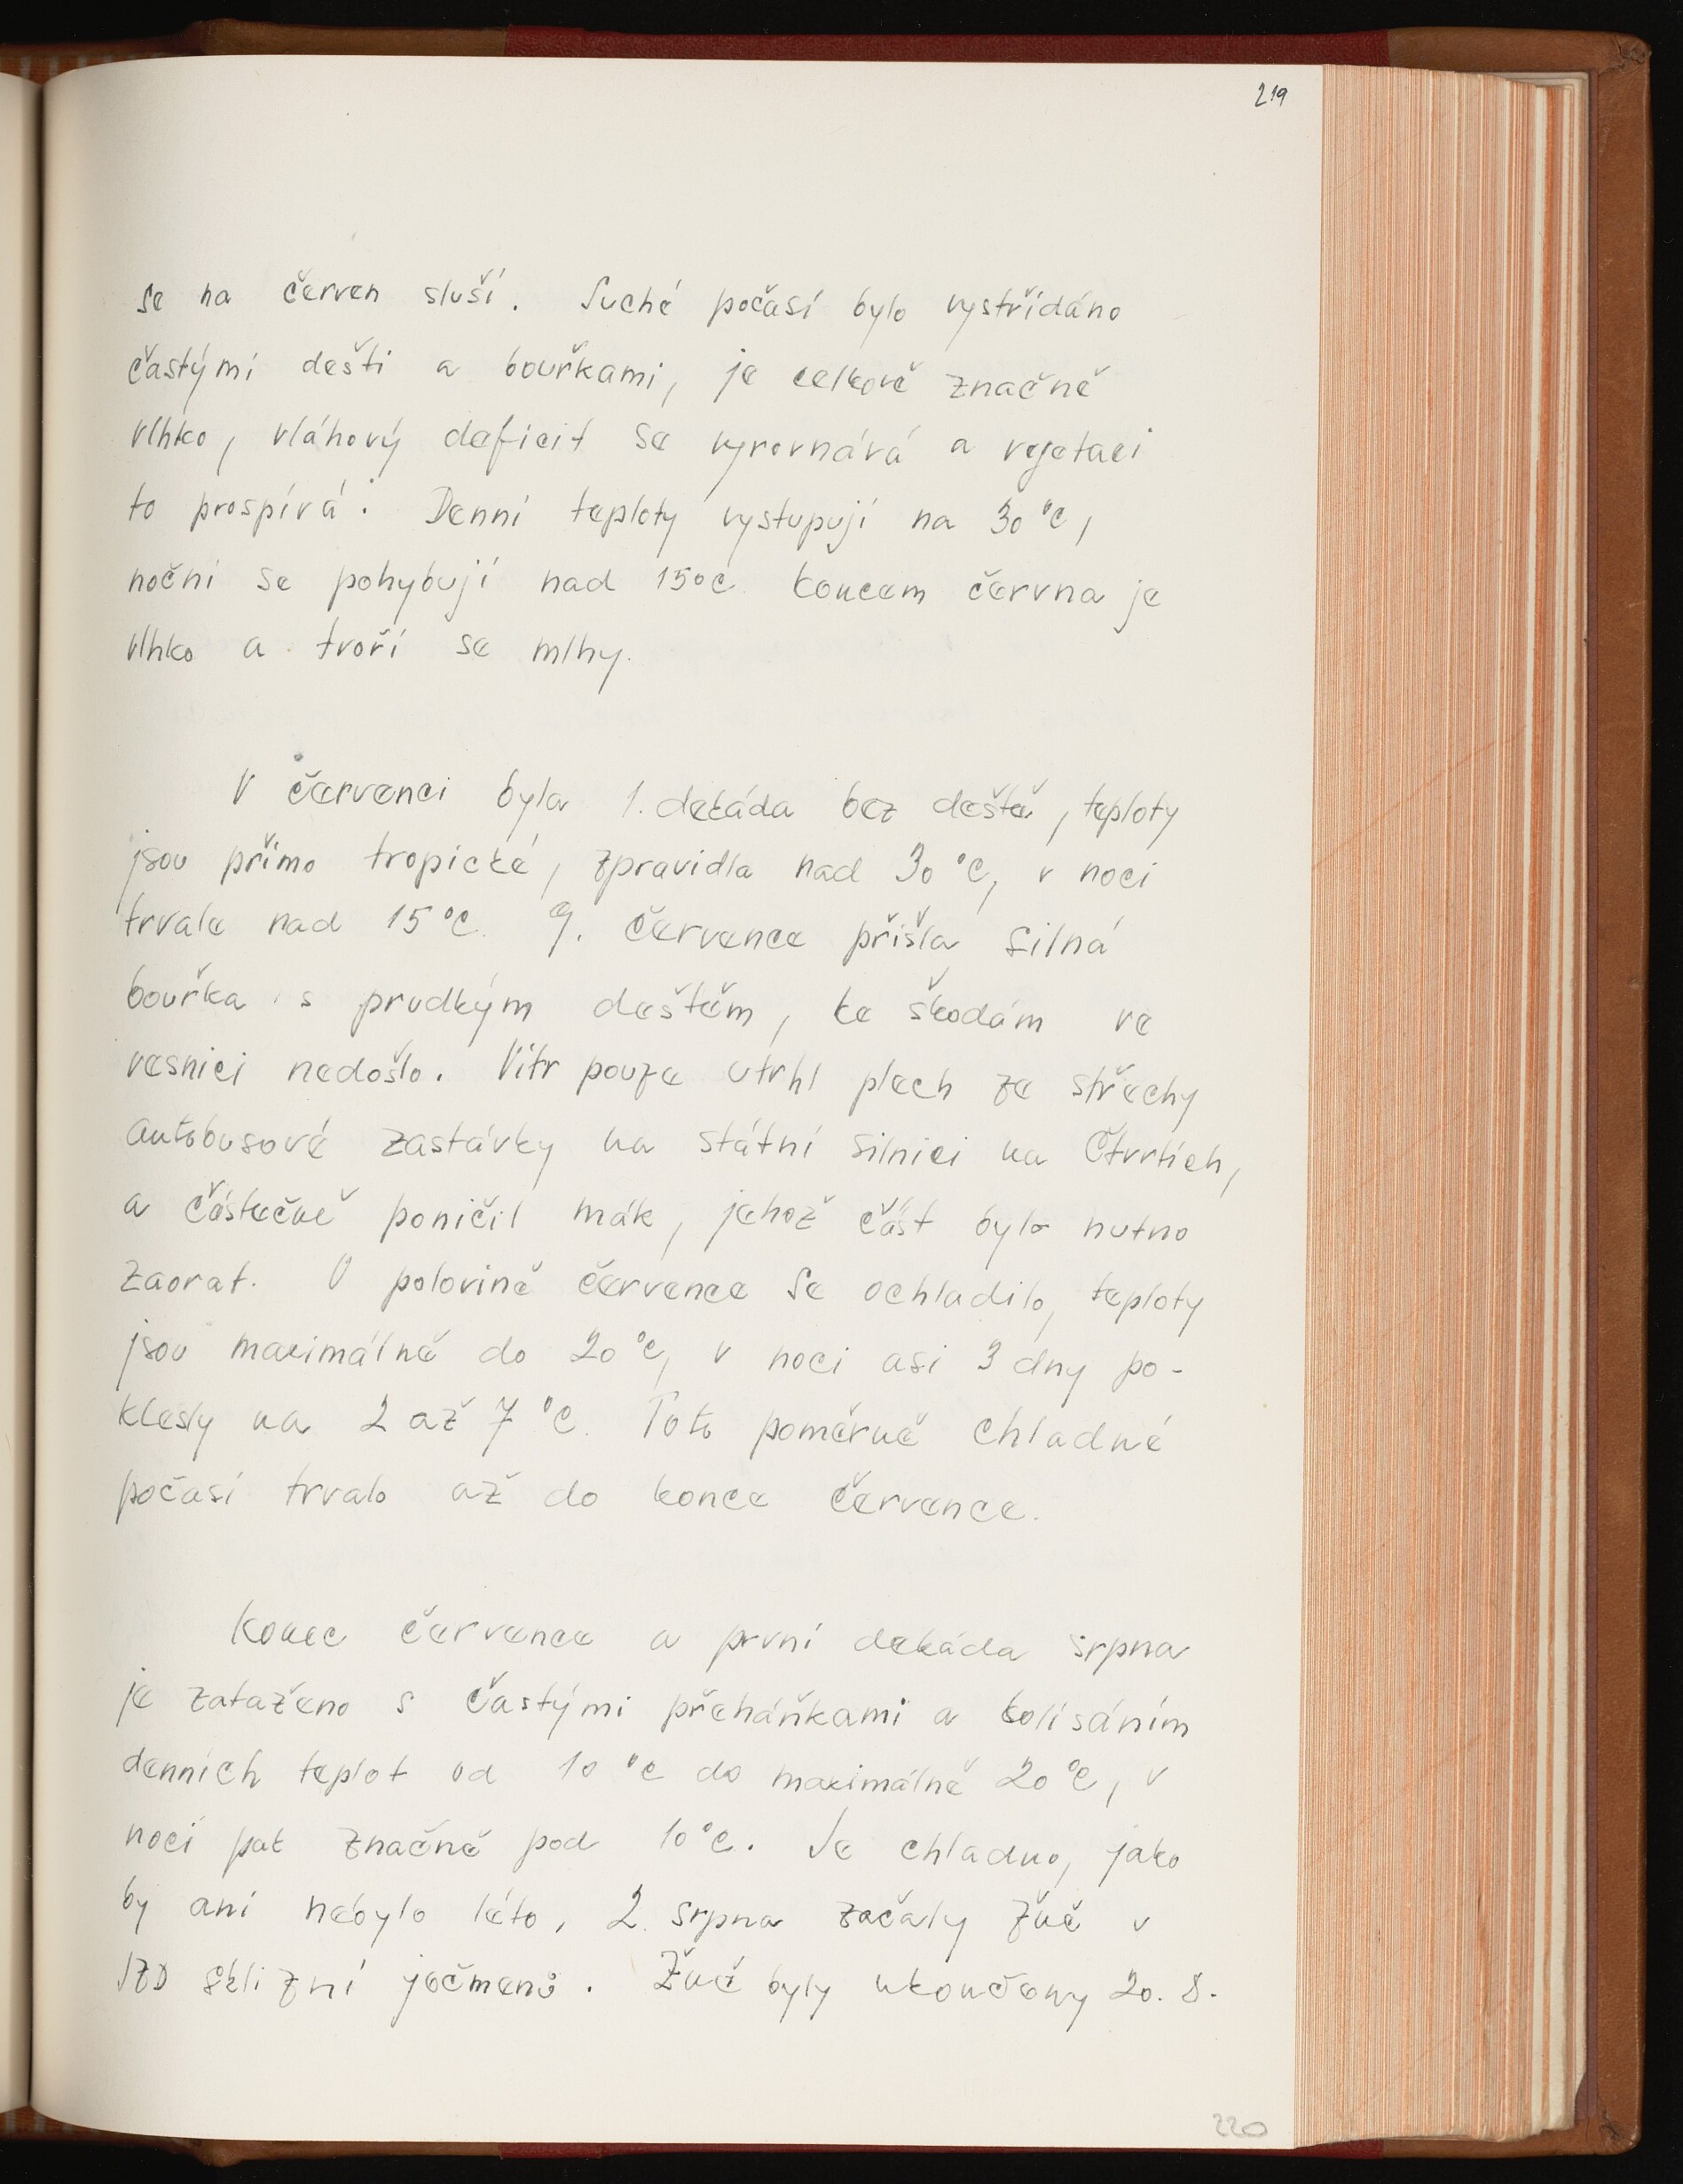 219
se na červen sluší. Suché počasí bylo vystřídáno
častými dešti a bouřkami, je celkově značně
vlhko, vláhový deficit se vyrovnává a vegetaci
to prospívá. Denní teploty vystupují na 30 °C,
noční se pohybují nad 15°C. Koncem června je
vlhko a tvoří se mlhy.
V červenci byla 1. dekáda bez deště, teploty
jsou přímo tropické, zpravidla nad 30 °C, v noci
trvale nad 15 °C. 9. července přišla silná
bouřka s prudkým deštěm, ke škodám ve
vesnici nedošlo. Vítr pouze utrhl plech ze střechy
autobusové zastávky na státní silnici na Čtvrtích,
a částečně poničil mák, jehož část bylo nutno
zaorat. V polovině července se ochladilo, teploty
jsou maximálně do 20 °C, v noci asi 3 dny po-
klesly na 2 až 7 °C. Toto poměrně chladné
počasí trvalo až do konce července.
Konec července a první dekáda srpna
je zataženo s častými přeháňkami a kolísáním
denních teplot od 10 °C do maximálně 20 °C, v
noci pak značně pod 10 °C. Je chladno, jako
by ani nebylo léto. 2. srpna začaly žně v
JZD sklizní ječmenů. Žně byly ukončeny 20. 8.
220